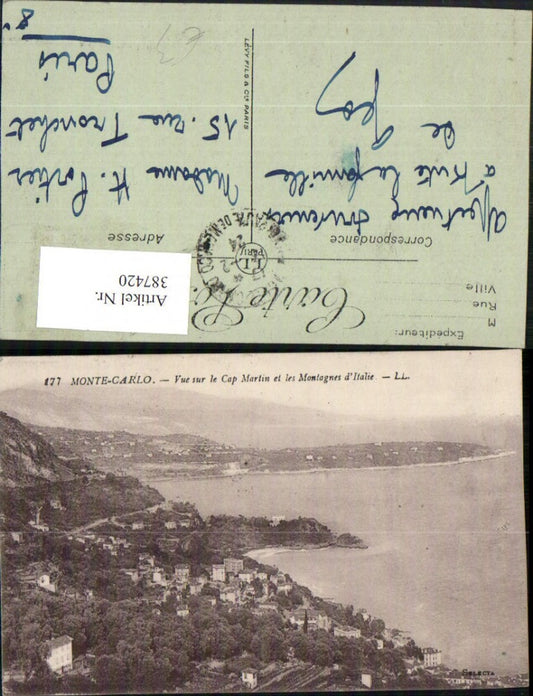 Expéditeur:
M
Rue
Ville
Carte
Correspondance
Adresse
Affectueux souvenirs
à toute la famille
de Geo
Madame H. Portier
15. rue Tronchet
Paris
8e
LÉVY FILS & Cie PARIS
LL
PARIS
Artikel Nr.
387420
177 MONTE-CARLO. — Vue sur le Cap Martin et les Montagnes d'Italie. — LL.
SELECTA